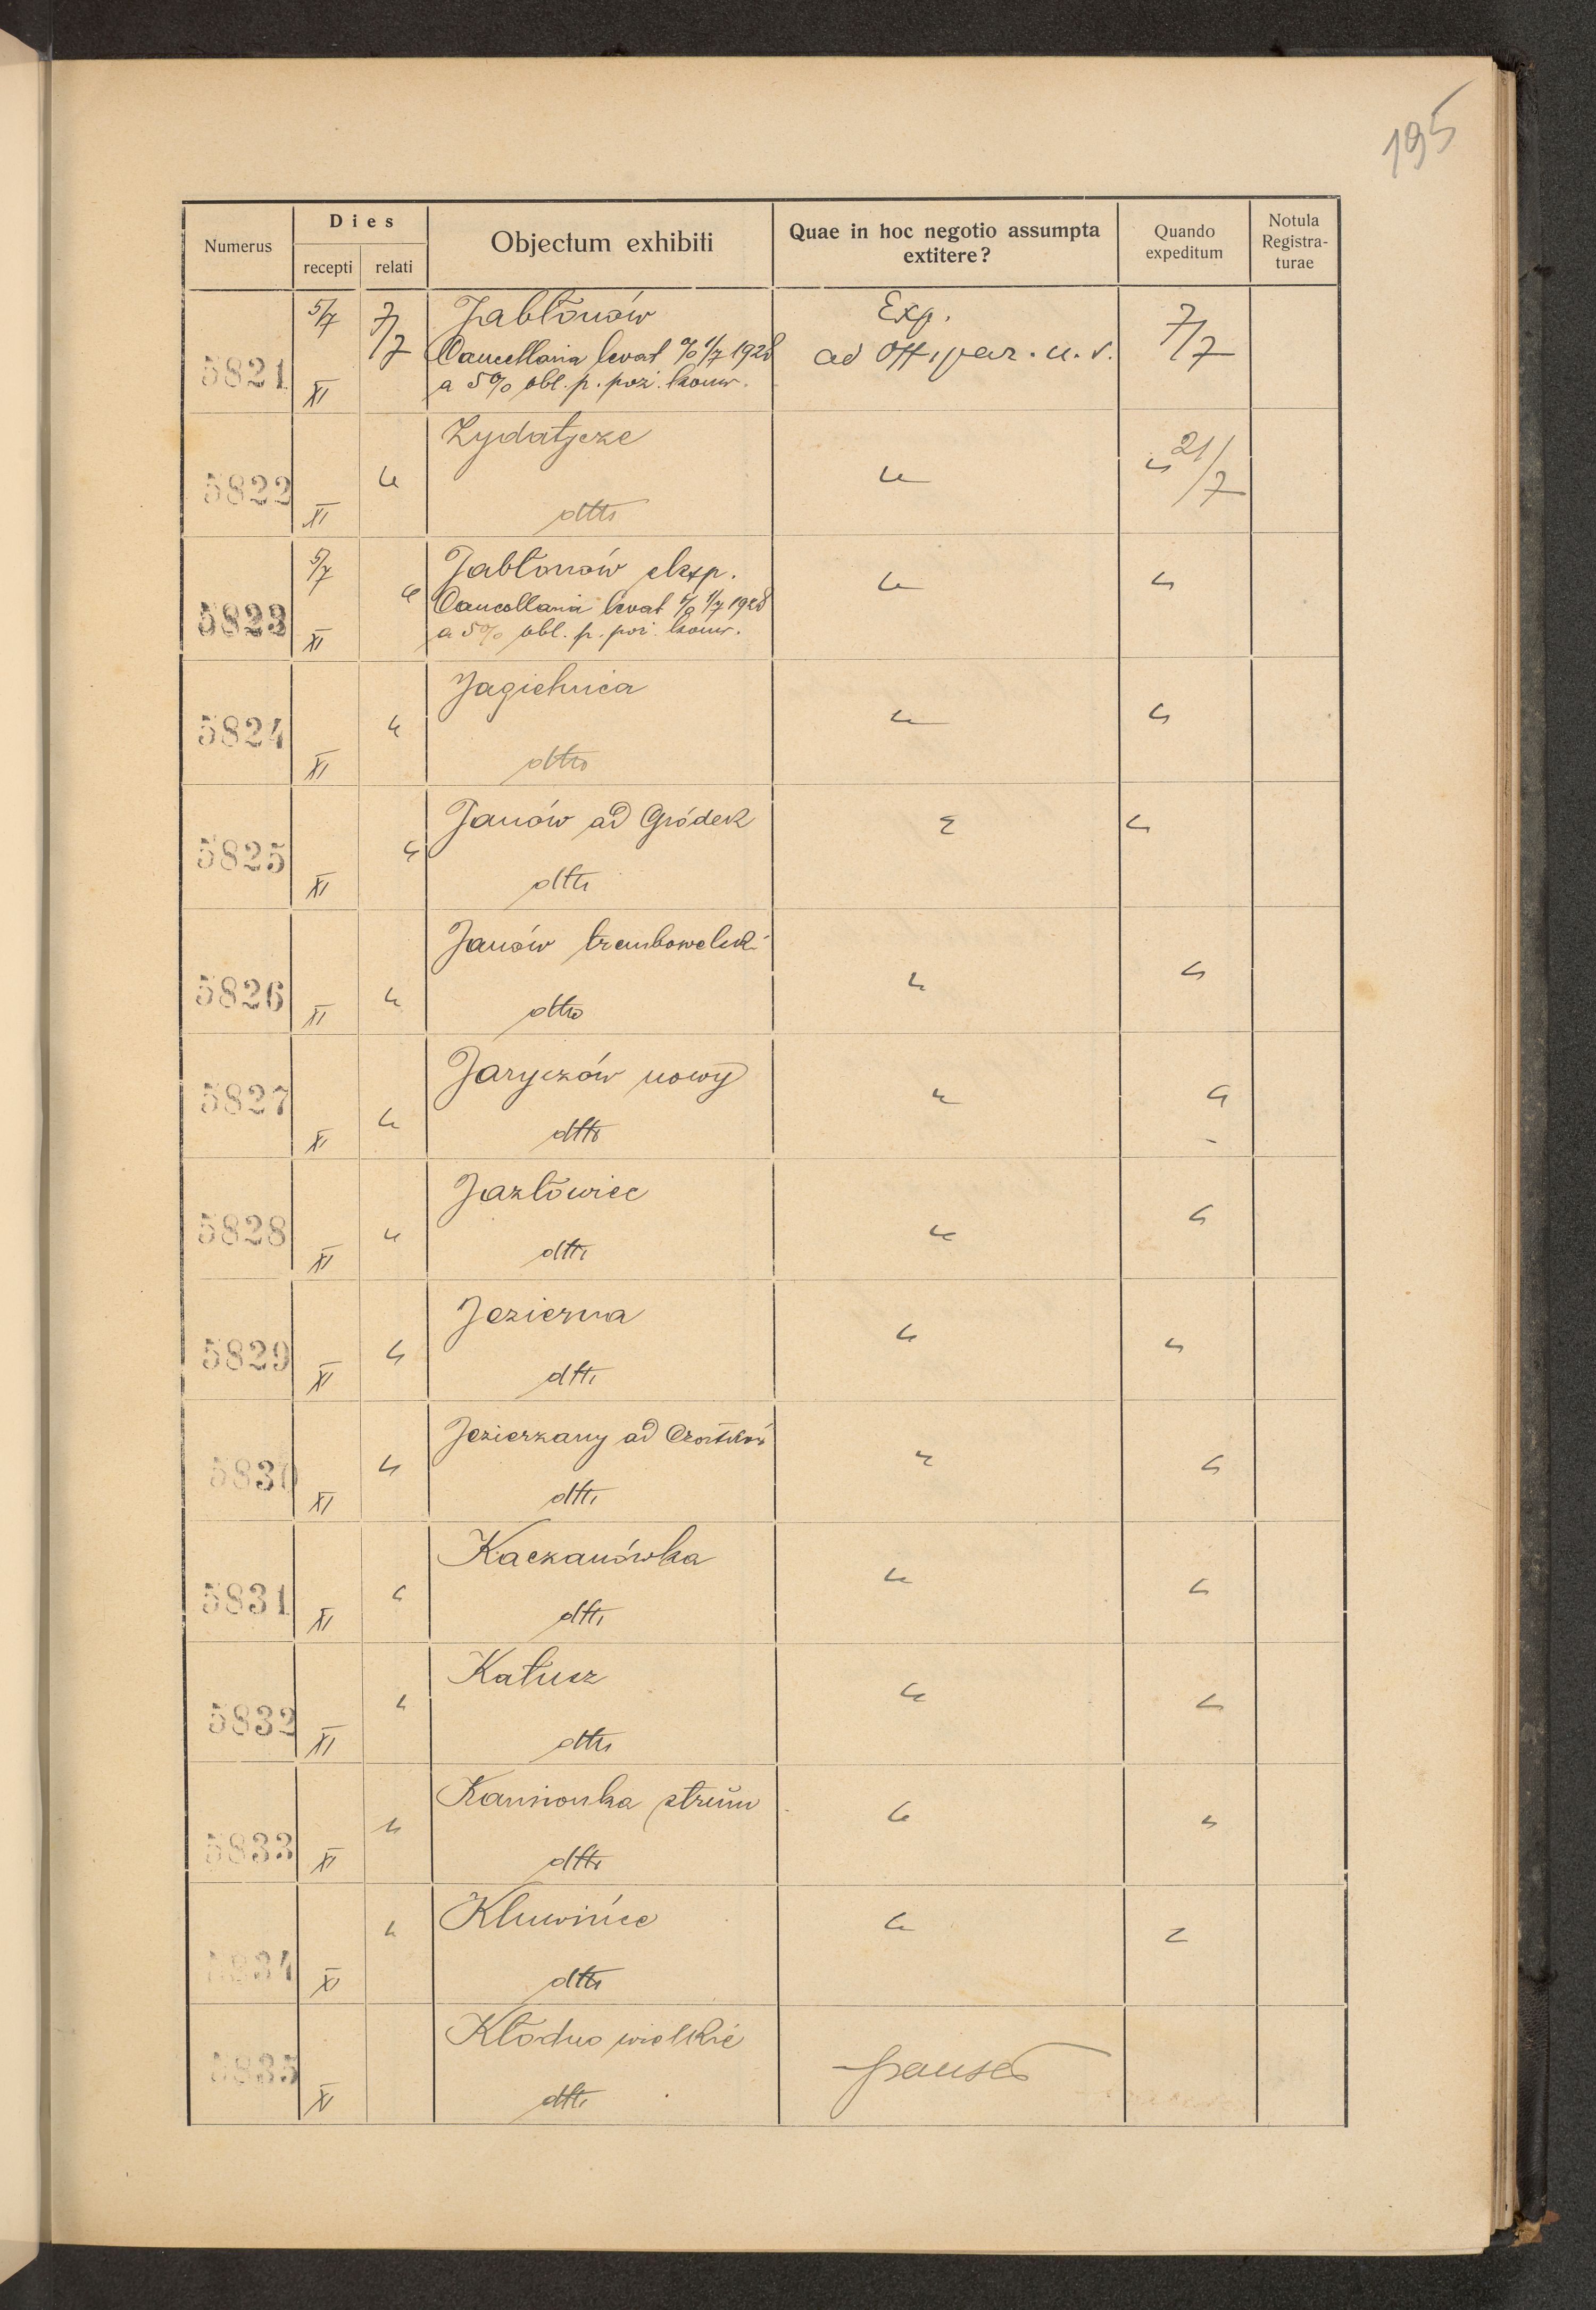 195
Numerus
Dies
recepti relati
Objectum exhibiti
Quae in hoc negotio assumpta
extitere?
Quando
expeditum
Notula
Registra-
turae
5821 5/7 XI 7/7 Jabłonów
Cancellaria levat % 1/7 1928
a 5% obl. p. poż. konw.
Exp.
ad Off. par. u. s. 7/7
5822 XI " Zydatycze
dtto " " 21/7
5823 5/7 XI " Jabłonów eksp.
Cancellaria levat % 1/7 1928
a 5% obl. p. poż. konw. " "
5824 XI " Jagielnica
dtto " "
5825 XI " Janów ad Gródek
dtto " "
5826 XI " Janów trembowelski
dtto " "
5827 XI " Jaryczów nowy
dtto " "
5828 XI " Jazłowiec
dtto " "
5829 XI " Jezierna
dtto " "
5830 XI " Jezierzany ad Czortków
dtto " "
5831 XI " Kaczanówka
dtto " "
5832 XI " Kałusz
dtto " "
5833 XI " Kamionka strum
dtto " "
5834 XI " Kluwińce
dtto " "
5835 XI Kłodno wielkie
dtto